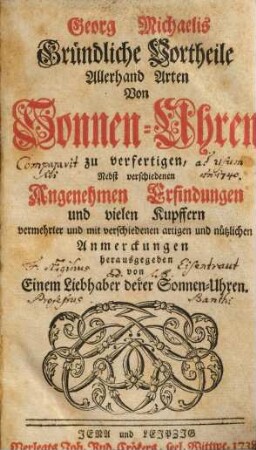 Georg Michaelis
Gründliche Vortheile
Allerhand Arten
Von
Sonnen-Uhren
Comparavit zu verfertigen, ad usum
Nebst verschiedenen
Angenehmen Erfindungen
und vielen Kupffern
vermehrter und mit verschiedenen artigen und nützlichen
Anmerckungen
herausgegeben
von Eisentraut
Einem Liebhaber derer Sonnen-Uhren.
Professus Banthi
JENA und LEIPZIG
Verlegts Joh. Rud. Crökers, seel. Wittwe, 1738